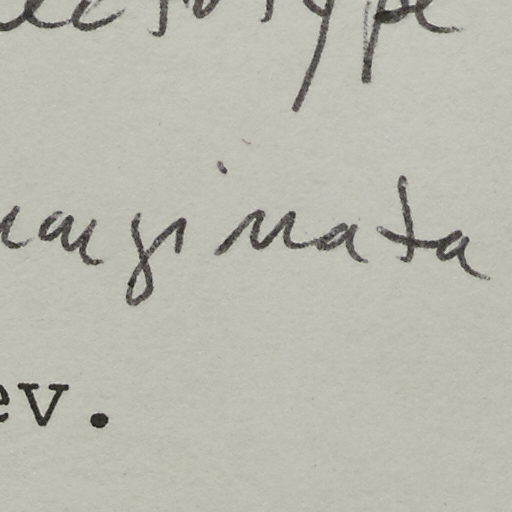 lectotype
marginata
ev.